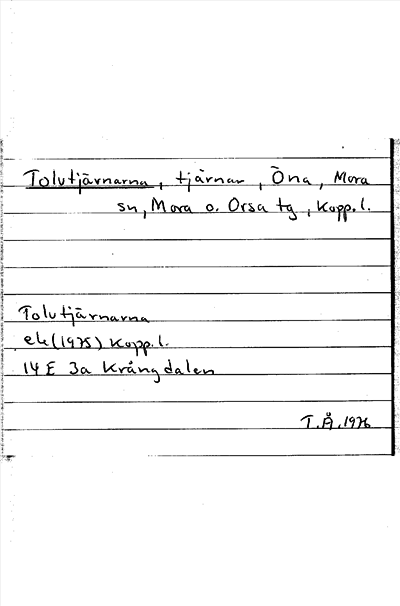 Tolvtjärnarna, tjärnar, Öna, Mora
sn, Mora o. Orsa tg, Kopp.l.
Tolvtjärnarna
ek(1975) Kopp.l.
14E 3a Krångdalen
T.Å.1976